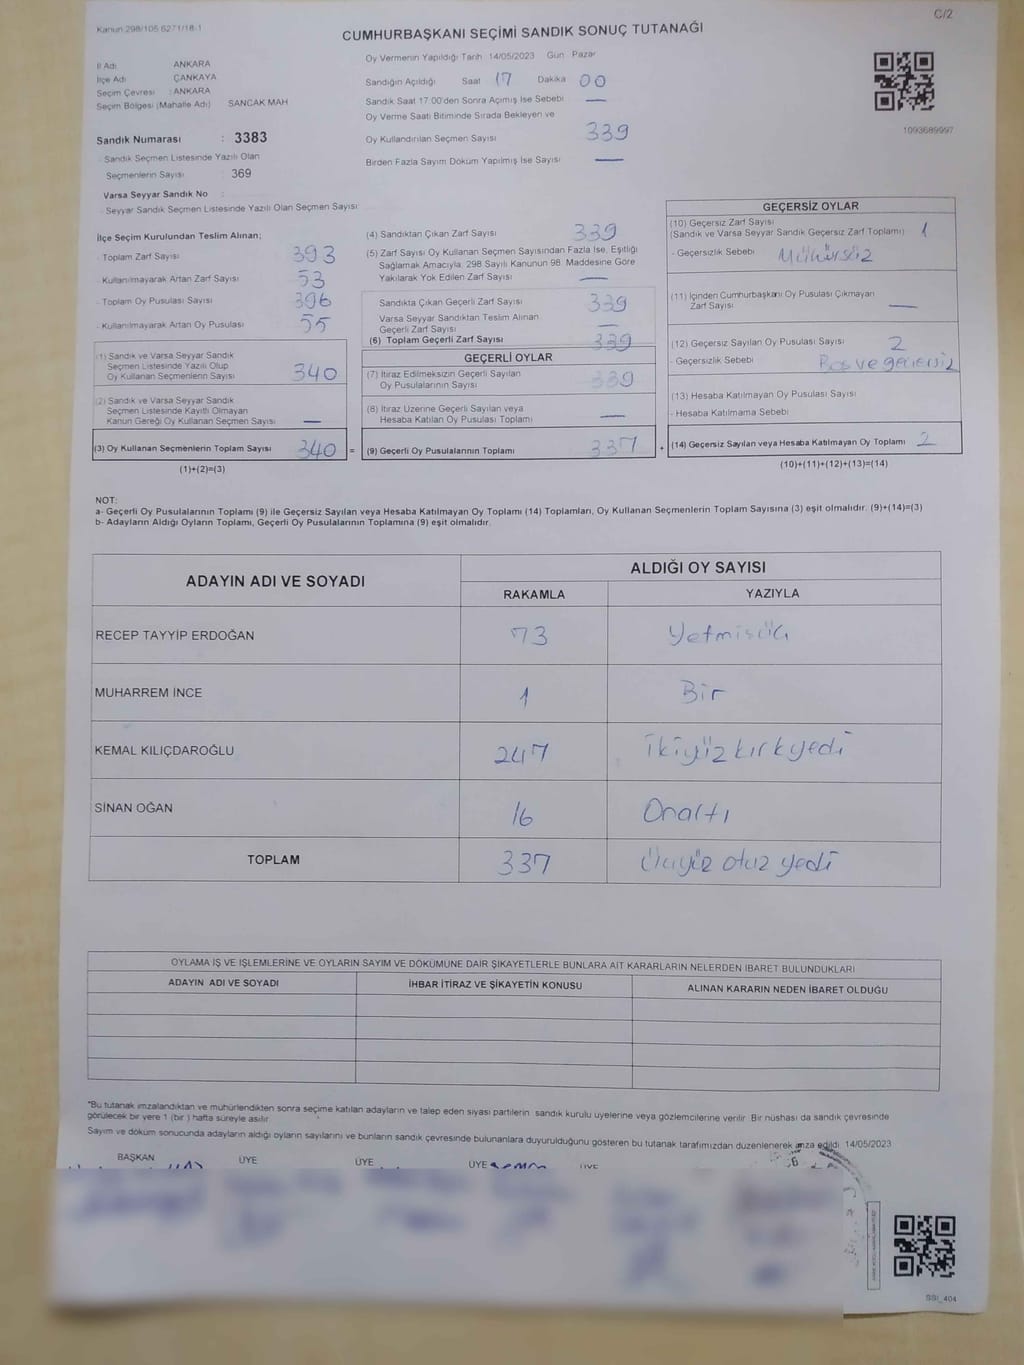 Kanun 298/105 6271/18-1
C/2
CUMHURBAŞKANI SEÇİMİ SANDIK SONUÇ TUTANAĞI
İl Adı ANKARA
İlçe Adı ÇANKAYA
Seçim Çevresi : ANKARA
Seçim Bölgesi (Mahalle Adı) SANCAK MAH
Sandık Numarası : 3383
- Sandık Seçmen Listesinde Yazılı Olan
Seçmenlerin Sayısı : 369
Varsa Seyyar Sandık No
- Seyyar Sandık Seçmen Listesinde Yazılı Olan Seçmen Sayısı:
Oy Vermenin Yapıldığı Tarih 14/05/2023 Gün Pazar
Sandığın Açıldığı Saat 17 Dakika 00
Sandık Saat 17:00'den Sonra Açımış İse Sebebi —
Oy Verme Saati Bitiminde Sırada Bekleyen ve
Oy Kullandırılan Seçmen Sayısı 339
Birden Fazla Sayım Döküm Yapılmış İse Sayısı —
1093689997
İlçe Seçim Kurulundan Teslim Alınan;
- Toplam Zarf Sayısı 393
- Kullanılmayarak Artan Zarf Sayısı 53
- Toplam Oy Pusulası Sayısı 396
- Kullanılmayarak Artan Oy Pusulası 55
(1) Sandık ve Varsa Seyyar Sandık
Seçmen Listesinde Yazılı Olup
Oy Kullanan Seçmenlerin Sayısı 340
(2) Sandık ve Varsa Seyyar Sandık
Seçmen Listesinde Kayıtlı Olmayan
Kanun Gereği Oy Kullanan Seçmen Sayısı —
(3) Oy Kullanan Seçmenlerin Toplam Sayısı 340 =
(1)+(2)=(3)
(4) Sandıktan Çıkan Zarf Sayısı 339
(5) Zarf Sayısı Oy Kullanan Seçmen Sayısından Fazla İse, Eşitliği
Sağlamak Amacıyla, 298 Sayılı Kanunun 98. Maddesine Göre
Yakılarak Yok Edilen Zarf Sayısı —
Sandıkta Çıkan Geçerli Zarf Sayısı 339
Varsa Seyyar Sandıktan Teslim Alınan
Geçerli Zarf Sayısı —
(6) Toplam Geçerli Zarf Sayısı 339
GEÇERLİ OYLAR
(7) İtiraz Edilmeksizin Geçerli Sayılan
Oy Pusulalarının Sayısı 339
(8) İtiraz Üzerine Geçerli Sayılan veya
Hesaba Katılan Oy Pusulası Toplamı —
(9) Geçerli Oy Pusulalarının Toplamı 337 +
GEÇERSİZ OYLAR
(10) Geçersiz Zarf Sayısı
(Sandık ve Varsa Seyyar Sandık Geçersiz Zarf Toplamı) 1
- Geçersizlik Sebebi Mühürsüz
(11) İçinden Cumhurbaşkanı Oy Pusulası Çıkmayan
Zarf Sayısı —
(12) Geçersiz Sayılan Oy Pusulası Sayısı 2
- Geçersizlik Sebebi Boş ve geçersiz
(13) Hesaba Katılmayan Oy Pusulası Sayısı
- Hesaba Katılmama Sebebi
(14) Geçersiz Sayılan veya Hesaba Katılmayan Oy Toplamı 2
(10)+(11)+(12)+(13)=(14)
NOT:
a- Geçerli Oy Pusulalarının Toplamı (9) ile Geçersiz Sayılan veya Hesaba Katılmayan Oy Toplamı (14) Toplamları, Oy Kullanan Seçmenlerin Toplam Sayısına (3) eşit olmalıdır. (9)+(14)=(3)
b- Adayların Aldığı Oyların Toplamı, Geçerli Oy Pusulalarının Toplamına (9) eşit olmalıdır.
ADAYIN ADI VE SOYADI ALDIĞI OY SAYISI
RAKAMLA YAZIYLA
RECEP TAYYİP ERDOĞAN 73 Yetmişüç
MUHARREM İNCE 1 Bir
KEMAL KILIÇDAROĞLU 247 ikiyüz kırkyedi
SİNAN OĞAN 16 Onaltı
TOPLAM 337 Üçyüz otuz yedi
OYLAMA İŞ VE İŞLEMLERİNE VE OYLARIN SAYIM VE DÖKÜMÜNE DAİR ŞİKAYETLERLE BUNLARA AİT KARARLARIN NELERDEN İBARET BULUNDUKLARI
ADAYIN ADI VE SOYADI İHBAR İTİRAZ VE ŞİKAYETİN KONUSU ALINAN KARARIN NEDEN İBARET OLDUĞU
"Bu tutanak imzalandıktan ve mühürlendikten sonra seçime katılan adayların ve talep eden siyasi partilerin sandık kurulu üyelerine veya gözlemcilerine verilir. Bir nüshası da sandık çevresinde
görülecek bir yere 1 (bir ) hafta süreyle asılır.
Sayım ve döküm sonucunda adayların aldığı oyların sayılarını ve bunların sandık çevresinde bulunanlara duyurulduğunu gösteren bu tutanak tarafımızdan düzenlenerek imza edildi. 14/05/2023
BAŞKAN ÜYE ÜYE ÜYE
SSI_404